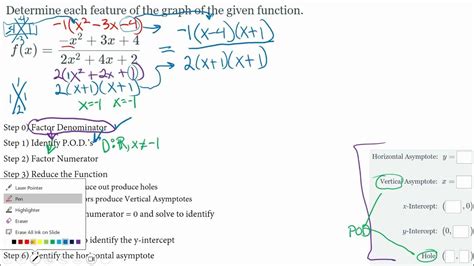 Determine each feature of the graph of the given function.
-1(x²-3x-4)
f(x) = (-x² + 3x + 4)/(2x² + 4x + 2) = -1(x-4)(x+1)/2(x+1)(x+1)
2(1x²+2x+1)
2(x+1)(x+1)
x=-1 x=-1
Step 0) Factor Denominator
Step 1) Identify P.O.D.'s D: ℝ, x≠-1
Step 2) Factor Numerator
Step 3) Reduce the Function
Laser Pointer
Pen
Highlighter
Eraser
Erase All Ink on Slide
uce out produce holes
ors produce Vertical Asymptotes
numerator = 0 and solve to identify
o identify the y-intercept
Step 6) Identify the horizontal asymptote
Horizontal Asymptote: y =
Vertical Asymptote: x =
x-Intercept: ( , 0)
y-Intercept: (0, )
POD
Hole: ( , )